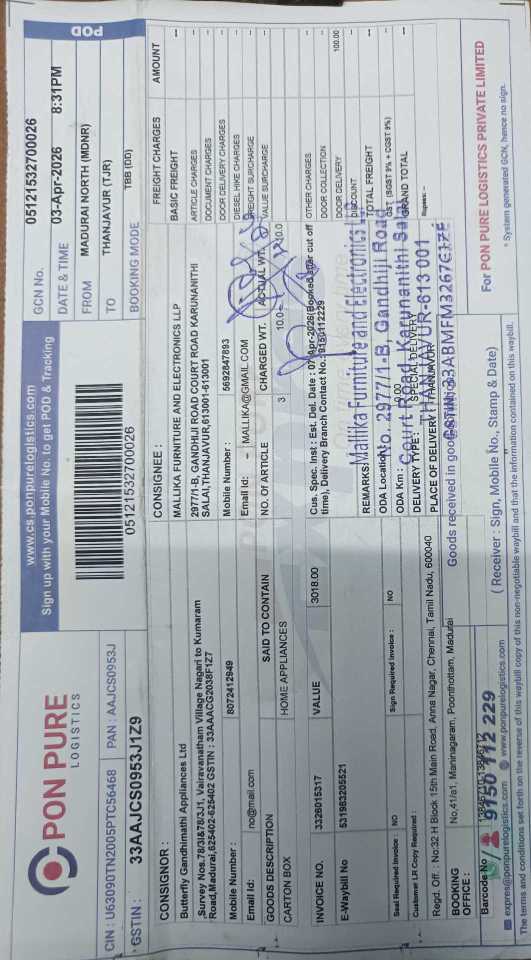 PON PURE
LOGISTICS
www.cs.ponpurelogistics.com
Sign up with your Mobile No. to get POD & Tracking
POD
GCN No. 05121532700026
DATE & TIME 03-Apr-2026 8:31PM
FROM MADURAI NORTH (MDNR)
TO THANJAVUR (TJR)
BOOKING MODE TBB (DD)
CIN : U63090TN2005PTC56468 PAN : AAJCS0953J
GSTIN : 33AAJCS0953J1Z9
05121532700026
CONSIGNOR :
Butterfly Gandhimathi Appliances Ltd
,Survey Nos.78/3I&78/3J1, Vairavanatham Village Nagari to Kumaram
Road,Madurai,625402-625402 GSTIN : 33AAACG2038F1Z7
Mobile Number : 8072412949
Email Id: no@mail.com
CONSIGNEE :
MALLIKA FURNITURE AND ELECTRONICS LLP
2977/1-B, GANDHIJI ROAD COURT ROAD KARUNANITHI
SALAI,THANJAVUR,613001-613001
Mobile Number : 5692847893
Email Id: – MALLIKA@GMAIL.COM
FREIGHT CHARGES AMOUNT
BASIC FREIGHT --
ARTICLE CHARGES --
DOCUMENT CHARGES --
DOOR DELIVERY CHARGES --
DIESEL HIKE CHARGES --
FREIGHT SURCHARGE --
VALUE SURCHARGE --
OTHER CHARGES --
DOOR COLLECTION --
DOOR DELIVERY 100.00
DISCOUNT --
TOTAL FREIGHT --
GST (SGST 9% + CGST 9%) --
GRAND TOTAL --
Rupees: --
GOODS DESCRIPTION SAID TO CONTAIN NO. Of ARTICLE CHARGED WT. ACTUAL WT.
CARTON BOX HOME APPLIANCES 3 10.0 10.0
INVOICE NO. 3326015317 VALUE 3018.00
E-Waybill No 531983205521
Cus. Spec. Inst : Est. Del. Date : 07-Apr-2026(Booked after cut off
time), Delivery Branch Contact No.:9150112229
REMARKS:
ODA Location
ODA Km : 0.00
DELIVERY TYPE : SPECIAL DELIVERY
PLACE OF DELIVERY : THANJAVUR
Mallika Furniture and Electronics
No. 2977/1-B, Gandhiji Road
Court Road Karunanithi Salai
THANJAVUR-613 001
GSTIN:33ABMFM3267C1ZE
Seal Required Invoice : NO Sign Required Invoice : NO
Customer LR Copy Required :
Regd. Off. : No:32 H Block 15th Main Road, Anna Nagar, Chennai, Tamil Nadu, 600040
BOOKING OFFICE : No,41/a1, Maninagaram, Poonthottam, Madurai
Barcode No
9150 112 229
Goods received in good
( Receiver : Sign, Mobile No., Stamp & Date)
For PON PURE LOGISTICS PRIVATE LIMITED
* System generated GCN, hence no sign.
express@ponpurelogistics.com www.ponpurelogistics.com
The terms and conditions set forth on the reverse of this waybill copy of this non-negotiable waybill and that the information contained on this waybill.